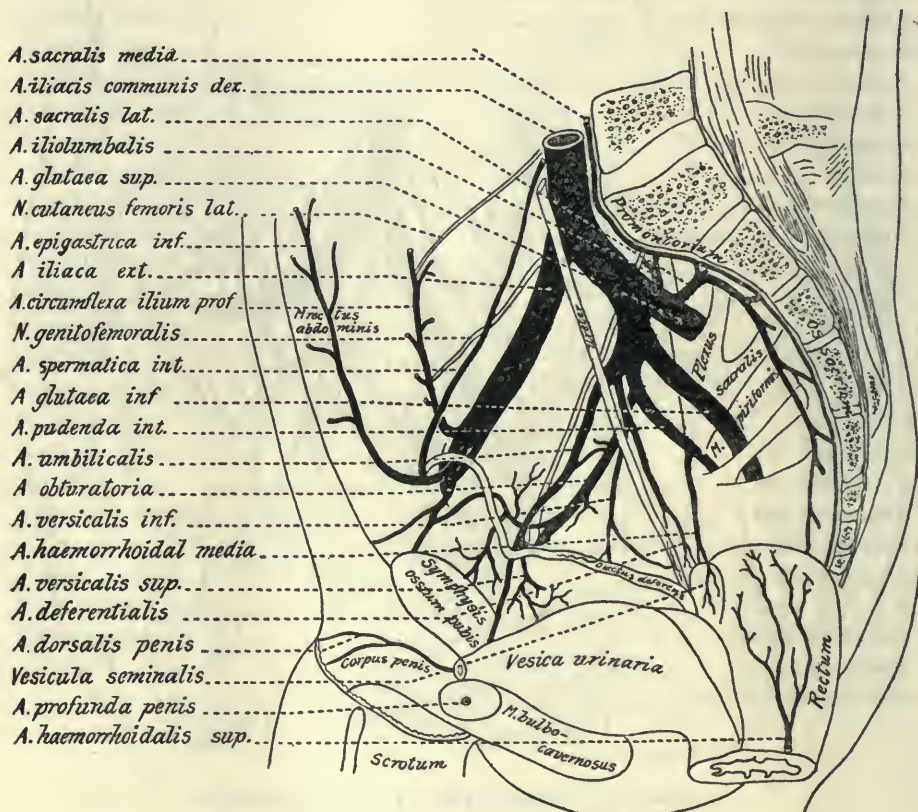 A. sacralis media
A. iliacis communis dex.
A. sacralis lat.
A. iliolumbalis
A. glutaea sup.
N. cutaneus femoris lat.
A. epigastrica inf.
A iliaca ext.
A. circumflexa ilium prof
N. genitofemoralis
A. spermatica int.
A glutaea inf
A. pudenda int.
A. umbilicalis
A obturatoria
A. versicalis inf.
A. haemorrhoidal media
A. versicalis sup.
A. deferentialis
A. dorsalis penis
Vesicula seminalis
A. profunda penis
A. haemorrhoidalis sup.
Promontorium
M rectus
abdominis
Plexus
sacralis
M. piriformis
Os
sacrum
Ductus deferens
Symphysis
ossium pubis
Corpus penis
Vesica urinaria
Rectum
M. bulbo-
cavernosus
Scrotum